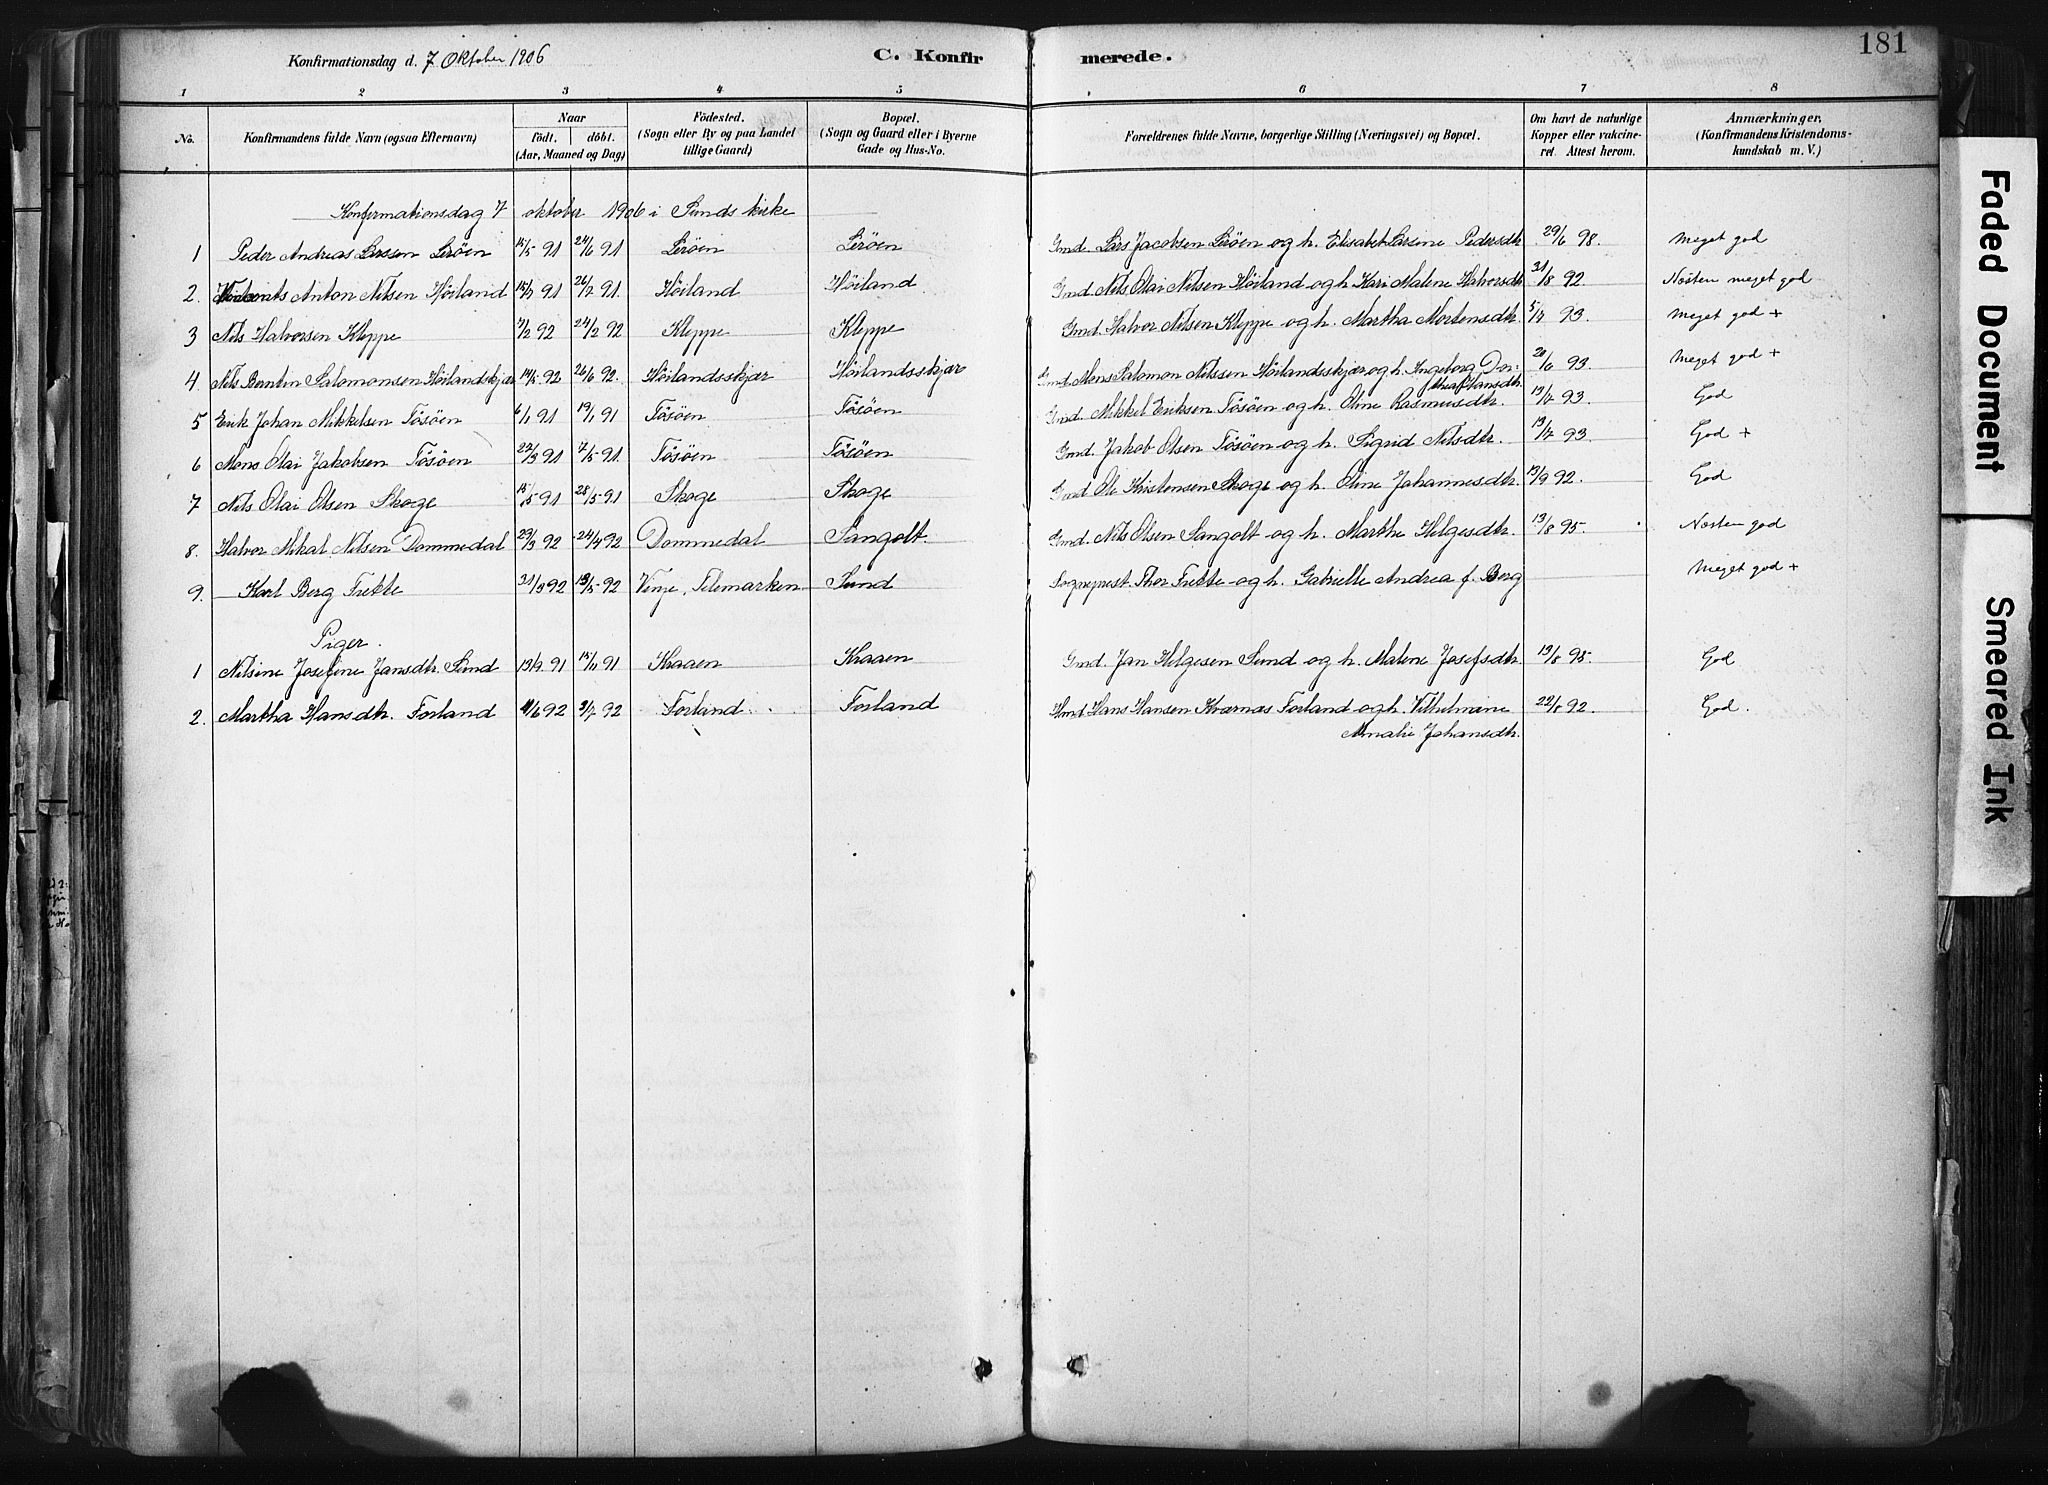 181
Konfirmationsdag d. 7 Oktober 1906 C. Konfir merede.
1 2 3 4 5 6 7 8
No. Konfirmandens fulde Navn (ogsaa Efternavn) Naar födt. döbt. (Aar, Maaned og Dag) Födested. (Sogn eller By og paa Landet tillige Gaard) Bopæl. (Sogn og Gaard eller i Byerne Gade og Hus-No. Forældrenes fulde Navne, borgerlige Stilling (Næringsvei) og Bopæl. Om havt de naturlige Kopper eller vakcineret. Attest herom. Anmærkninger, (Konfirmandens Kristendomskundskab m. V.)
Konfirmationsdag 7 oktober 1906 i Sunds kirke
1 Peder Andreas Larssen Lerøen 15/5 91 24/6 91 Lerøen Lerøen Gmd. Lars Jacobsen Lerøen og h. Elisabet Larsine Pedersdtr. 29/6 98. Meget god
2. Anton Nilsen Höiland 91 26/7 91. Höiland Höiland Gmd. Nils Olai Nilsen Höiland og h. Kari Malene Halvorsdtr. 31/8 92. Næsten meget god
3 Nils Halvorsen Kleppe 92 24/2 92 Kleppe Kleppe Gmd. Halvor Nilsen Kleppe og h. Martha Mortensdtr. 93. Meget god +
4. Nils Berntin Salomonsen Höilandskjær 14/5 92 26/6 92. Höilandsskjær Höilandsskjær Gmd. Mons Salomon Nilssen Höilandsskjær og h. Ingeborg Dorthea Hansdtr. 20/6 93. Meget god +
5 Erik Johan Mikkelsen Tösöen 6/1 91 19/1 91 Tösöen Tösöen Gmd. Mikkel Eriksen Tösöen og h. Oline Rasmusdtr. 13/7 93. God
6 Mons Olai Jakobsen Tösöen 22/3 91 7/5 91. Tösöen Tösöen Gmd. Jakob Olsen Tösöen og h. Sigrid Nilsdtr. 13/7 93. God +
7 Nils Olai Olsen Skoge 15/5 91 28/5 91 Skoge Skoge Gmd Ole Kristensen Skoge og h. Oline Johannesdtr. 13/9 92. God
8. Halvor Mikal Nilsen Dommedal 29/3 92 24/4 92 Dommedal Sangolt. Gmd. Nils Olsen Sangolt og h. Marthe Helgesdtr. 13/8 95. Næsten god
9. Karl Berg Trætte 31/3 92 13/5 92 Vinje, Telemarken Sund Sogneprest. Thor Trætte og h. Gabrielle Andrea f. Berg Meget god +
Piger.
1 Nilsine Josefine Jansdtr. Sund 13/9 91 15/11 91 Kraaen Kraaen Gmd. Jan Helgesen Sund og h. Malene Josefsdtr. 13/8 95. God
2. Martha Hansdtr. Forland 11/6 92 3/7 92 Forland Forland Hmd Hans Hansen Kværnæs Forland og h. Vilhelmine 22/8 92. God.
Amalie Johansdtr.
Faded Document
Smeared Ink